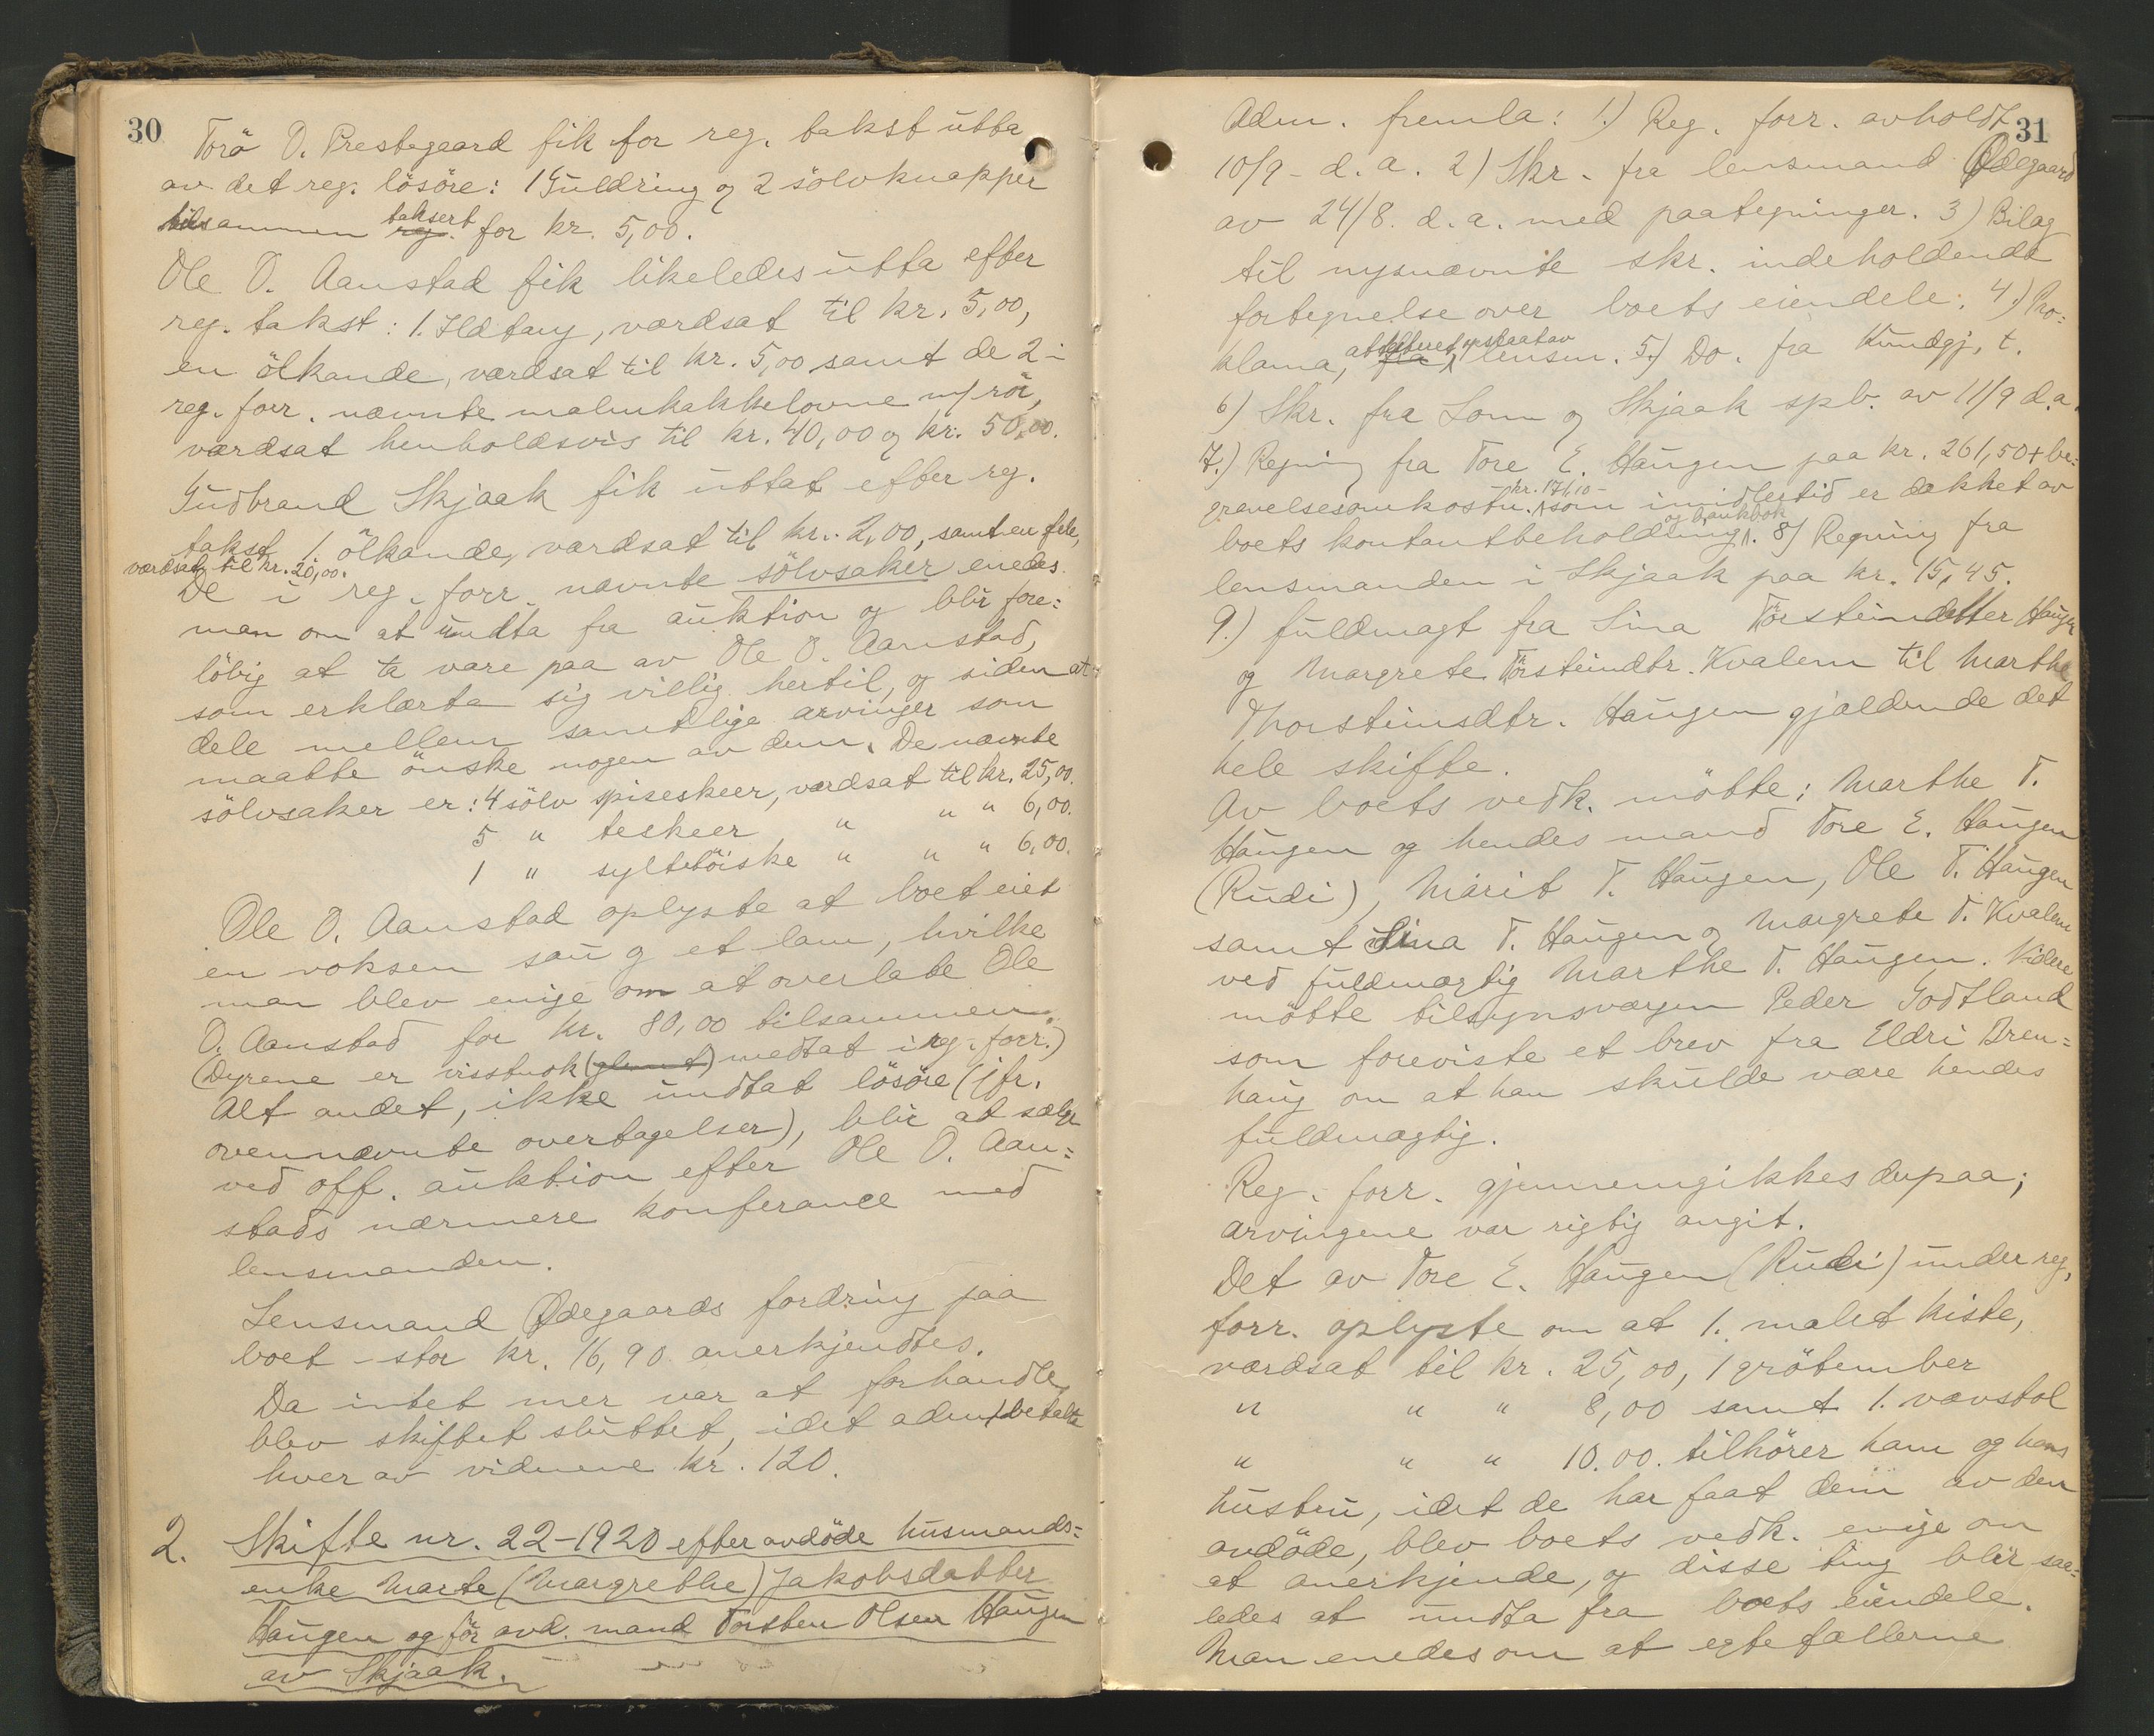 30
Torö O. Prestegaard fik for reg. takst utta
av det reg. lösöre: 1 Guldring og 2 sölvknapper
tilsammen reg. taksert for kr. 5,00.
Ole O. Aanstad fik likeledes utta efter
reg. takst: 1. Ildtang, værdsat til kr. 5,00,
en ölkande, værdsat til kr. 5,00 samt de 2 i
reg. forr. nævnte malmkakkelovne m/ rör,
værdsat henholdsvis til kr. 40,00 og kr. 50,00.
Gudbrand Skjaak fik uttat efter reg.
takst 1. ölkande, værdsat til kr. 2,00, samt en fele,
værdsat til kr. 20,00.
De i reg. forr. nævnte sölvsaker enedes
man om at undta fra auktion og blir fore=
löbig at ta vare paa av Ole O. Aanstad,
som erklærte sig villig hertil, og siden at
dele mellem samtlige arvinger som
maatte önske nogen av dem. De nævnte
sölvsaker er: 4 sölv spiseskeer, værdsat til kr. 25,00.
5 " teskeer " " " 6,00.
1 " syltetöiske " " " 6,00.
Ole O. Aanstad oplyste at boet eiet
en voksen sau og et lam, hvilke
man blev enige om at overlate Ole
O. Aanstad for kr. 80,00 tilsammen.
(Dyrene er visstnok (glemt) medtat i reg. forr.)
Alt andet, ikke undtat lösöre (jfr.
ovennævnte overtagelser), blir at sælge
ved off. auktion efter Ole O. Aan=
stads nærmere konferance med
lensmanden.
Lensmand Ødegaards fordring paa
boet - stor kr. 16,90 anerkjendtes.
Da intet mer var at forhandle,
blev skiftet sluttet, idet adm. betalte
hver av vidnene kr. 120.
2. Skifte nr. 22-1920 efter avdöde husmands=
enke Marte (Margrethe) Jakobsdatter
Haugen og för avd. mand Torsten Olsen Haugen
av Skjaak.
31
Adm. fremla: 1.) Reg. forr. avholdt
10/9 - d. a. 2) Skr. fra lensmand Ødegaard
av 24/8. d. a. med paategninger. 3) Bilag
til nysnævnte skr. indeholdende
fortegnelse over boets eiendele. 4.) Pro=
klama, fra lensm. 5.) Do. fra Kundgj. t.
6) Skr. fra Lom og Skjaak spb. av 11/9 d.a.
7.) Regning fra Tore E. Haugen paa kr. 261,50 + be=
gravelsesomkostn. kr. 171,10 - som imidlertid er dækket av
boets kontantbeholdning og bankbok. 8) Regning fra
lensmanden i Skjaak paa kr. 15,45.
9.) fuldmagt fra Sina Torsteindatter Haugen
og Margrete Torsteindtr. Kvalem til Marthe
Thorsteinsdtr. Haugen gjældende det
hele skifte.
Av boets vedk. mötte: Marthe T.
Haugen og hendes mand Tore E. Haugen
(Rudi), Marit T. Haugen, Ole T. Haugen
samt Sina T. Haugen og Margrete T. Kvalem
ved fuldmægtig Marthe T. Haugen. Videre
mötte tilsynsværgen Peder Godtland
som foreviste et brev fra Eldri Bren=
haug om at han skulde være hendes
fuldmægtig.
Reg. forr. gjennemgikkes derpaa;
arvingene var rigtig angit.
Det av Tore E. Haugen (Rudi) under reg.
forr. oplyste om at 1. malet kiste,
værdsat til kr. 25,00, 1 grötember
" " " 8,00 samt 1. vævstol
" " " 10.00. tilhörer ham og hans
hustru, idet de har faat dem av den
avdöde, blev boets vedk. enige om
at anerkjende, og disse ting blir saa=
ledes at undta fra boets eiendele.
Man enedes om at egtefællerne